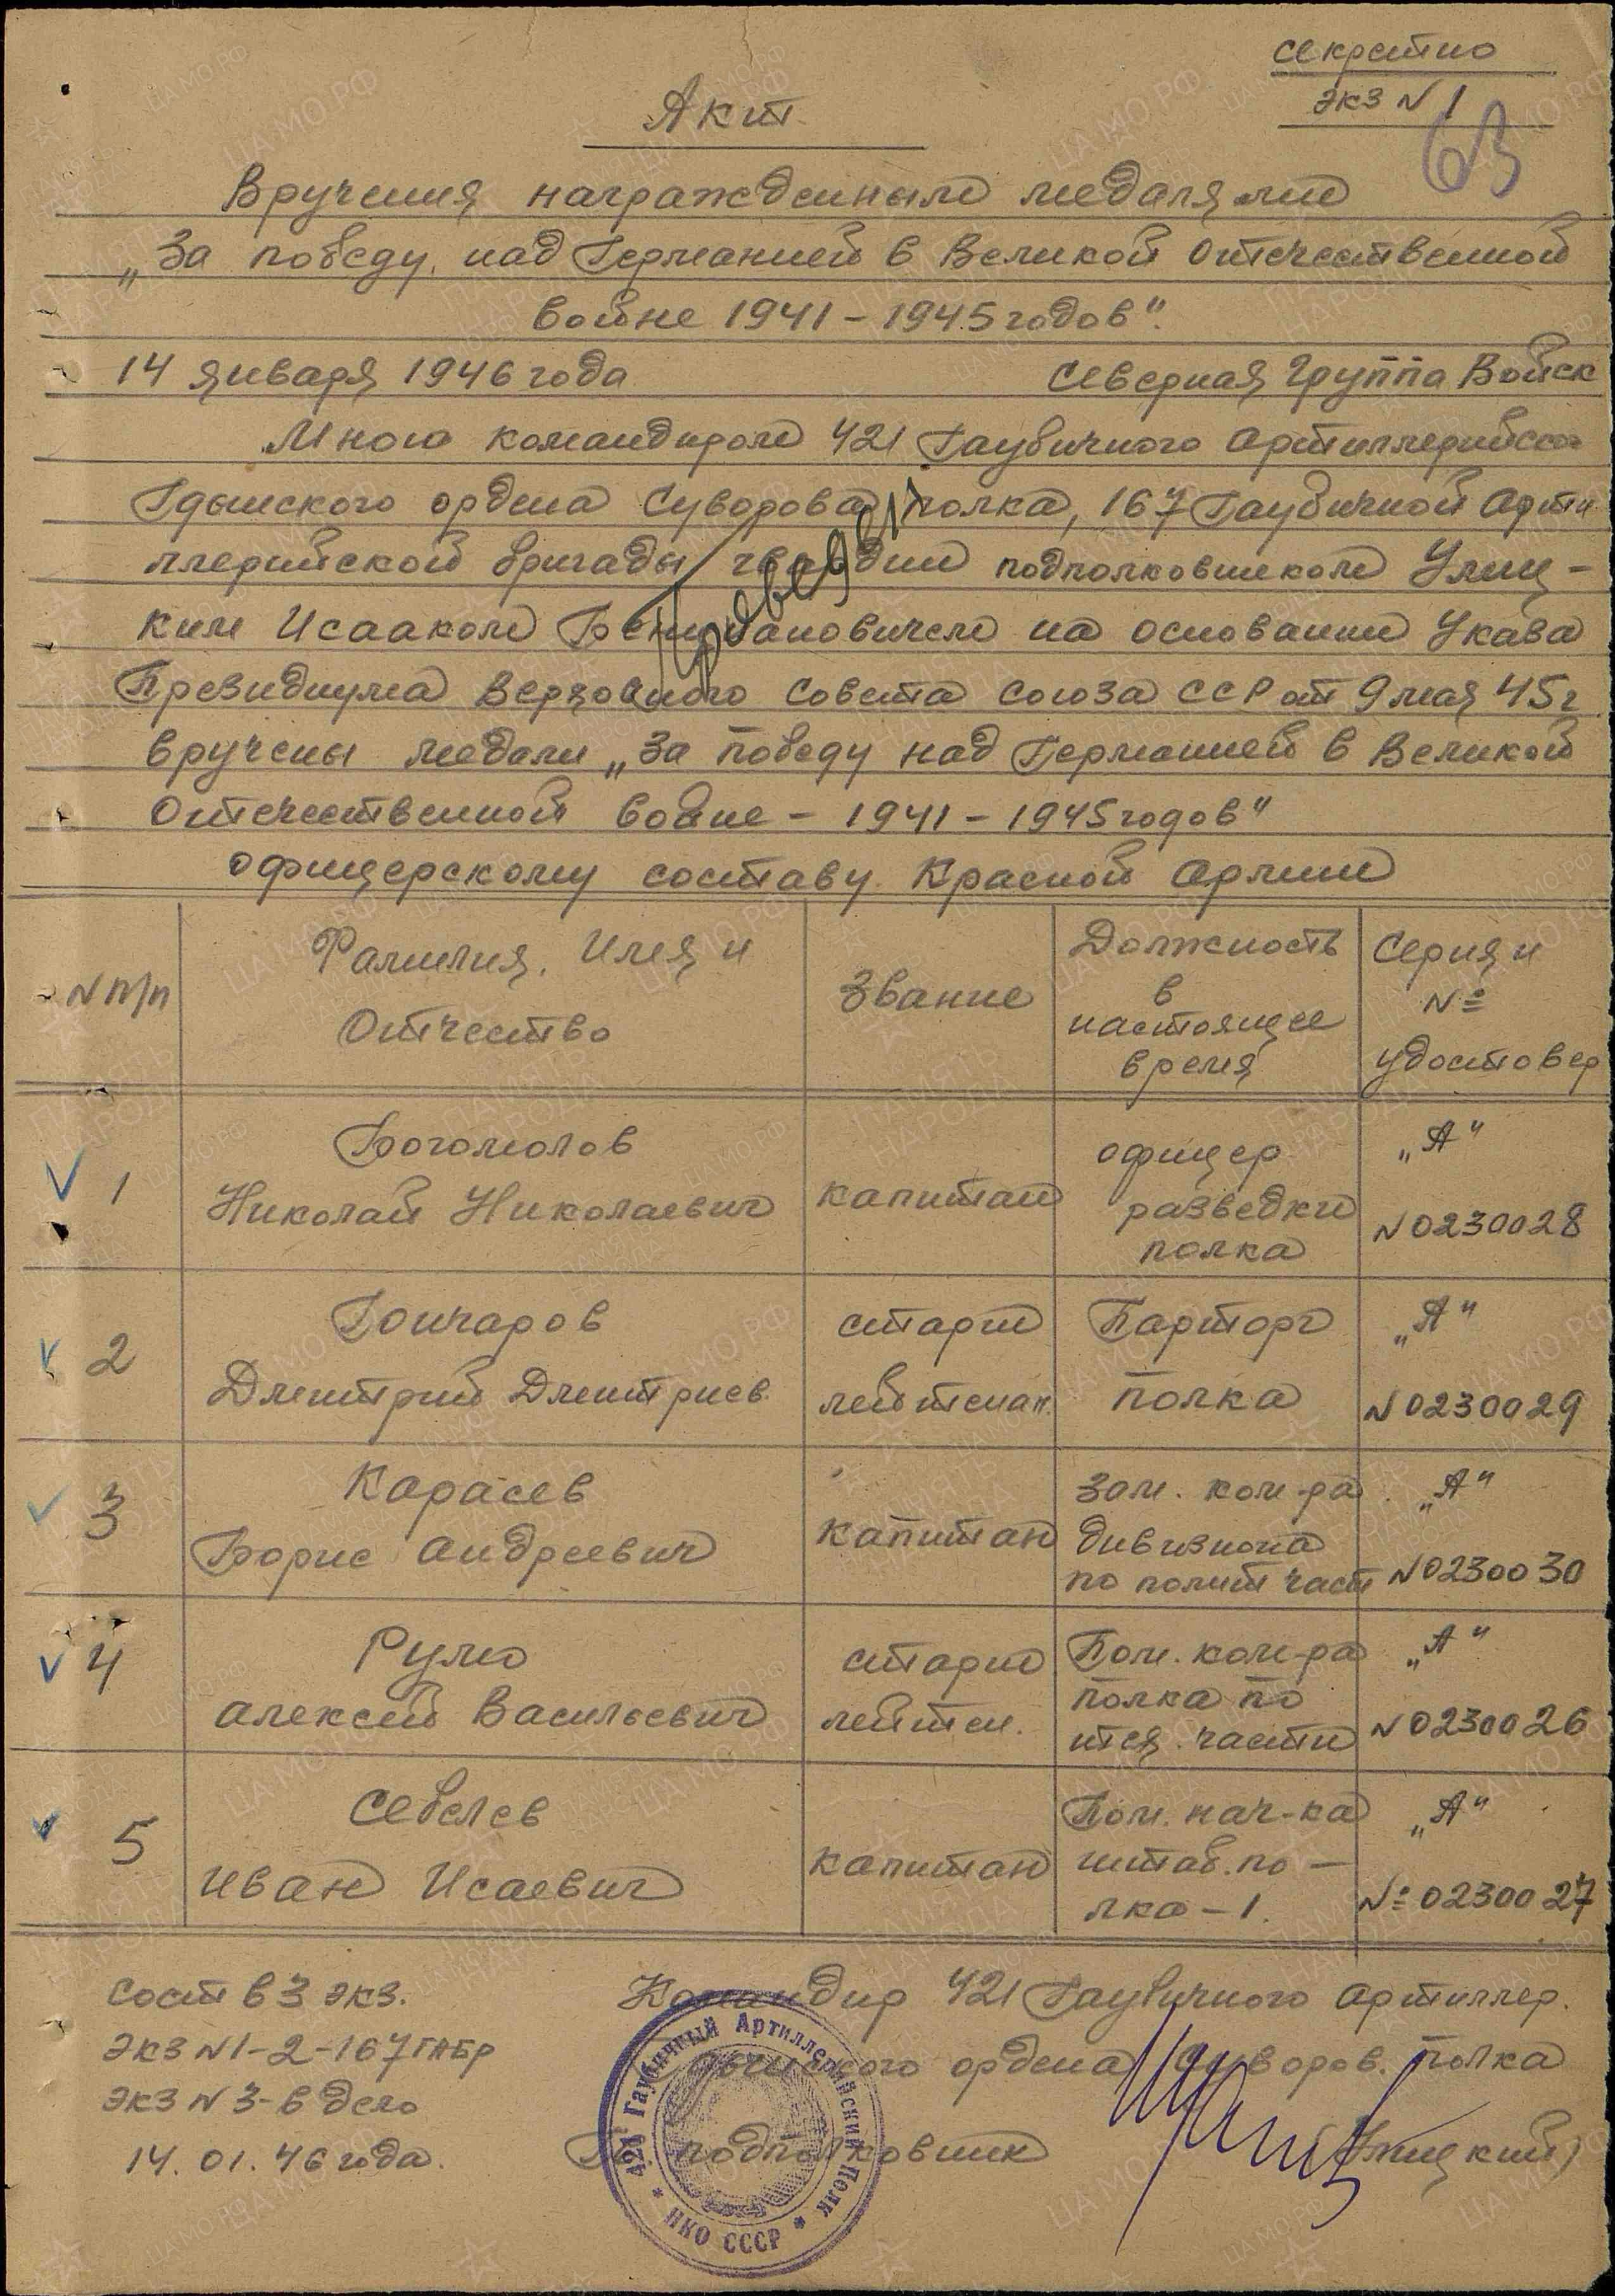 секретно
экз N 1
63
Акт
Вручения награжденным медалями
„За победу над Германией в Великой Отечественной
войне 1941-1945 годов".
14 января 1946 года Северная Группа Войск
Мною командиром 421 Гаубичного Артиллерийско
Гдынского ордена Суворова полка, 167 Гаубичной Арти
ллерийской бригады гвардии подполковником Улиц-
ким Исааком на основании Указа
Президиума Верховного Совета Союза ССР от 9 мая 45 г
вручены медали „За победу над Германией в Великой
Отечественной войне - 1941-1945 годов"
офицерскому составу Красной Армии
N п/п Фамилия, Имя и Отчество Звание Должность в настоящее время Серия и № удостовер
1 Богомолов Николай Николаевич капитан офицер разведки полка „А" N 0230028
2 Гончаров Дмитрий Дмитриев. старш лейтенан. Парторг полка „А" N 0230029
3 Карасев Борис Андреевич капитан зам. ком-ра дивизиона по полит част „А" N 0230030
4 Румо Алексей Васильевич старш лейтен. Пом. ком-ра полка по части „А" N 0230026
5 Севелев Иван Исаевич капитан Пом. нач-ка штаб. по-лка-1. „А" № 0230027
Сост в 3 экз.
экз N 1-2-167 ГАБр
экз N 3-в дело
14.01.46 года.
Командир 421 Гаубичного Артиллер.
Гдынского ордена Суворов. полка
Гв подполковник (Улицкий)
421 Гаубичный Артиллерийский Полк
* НКО СССР *